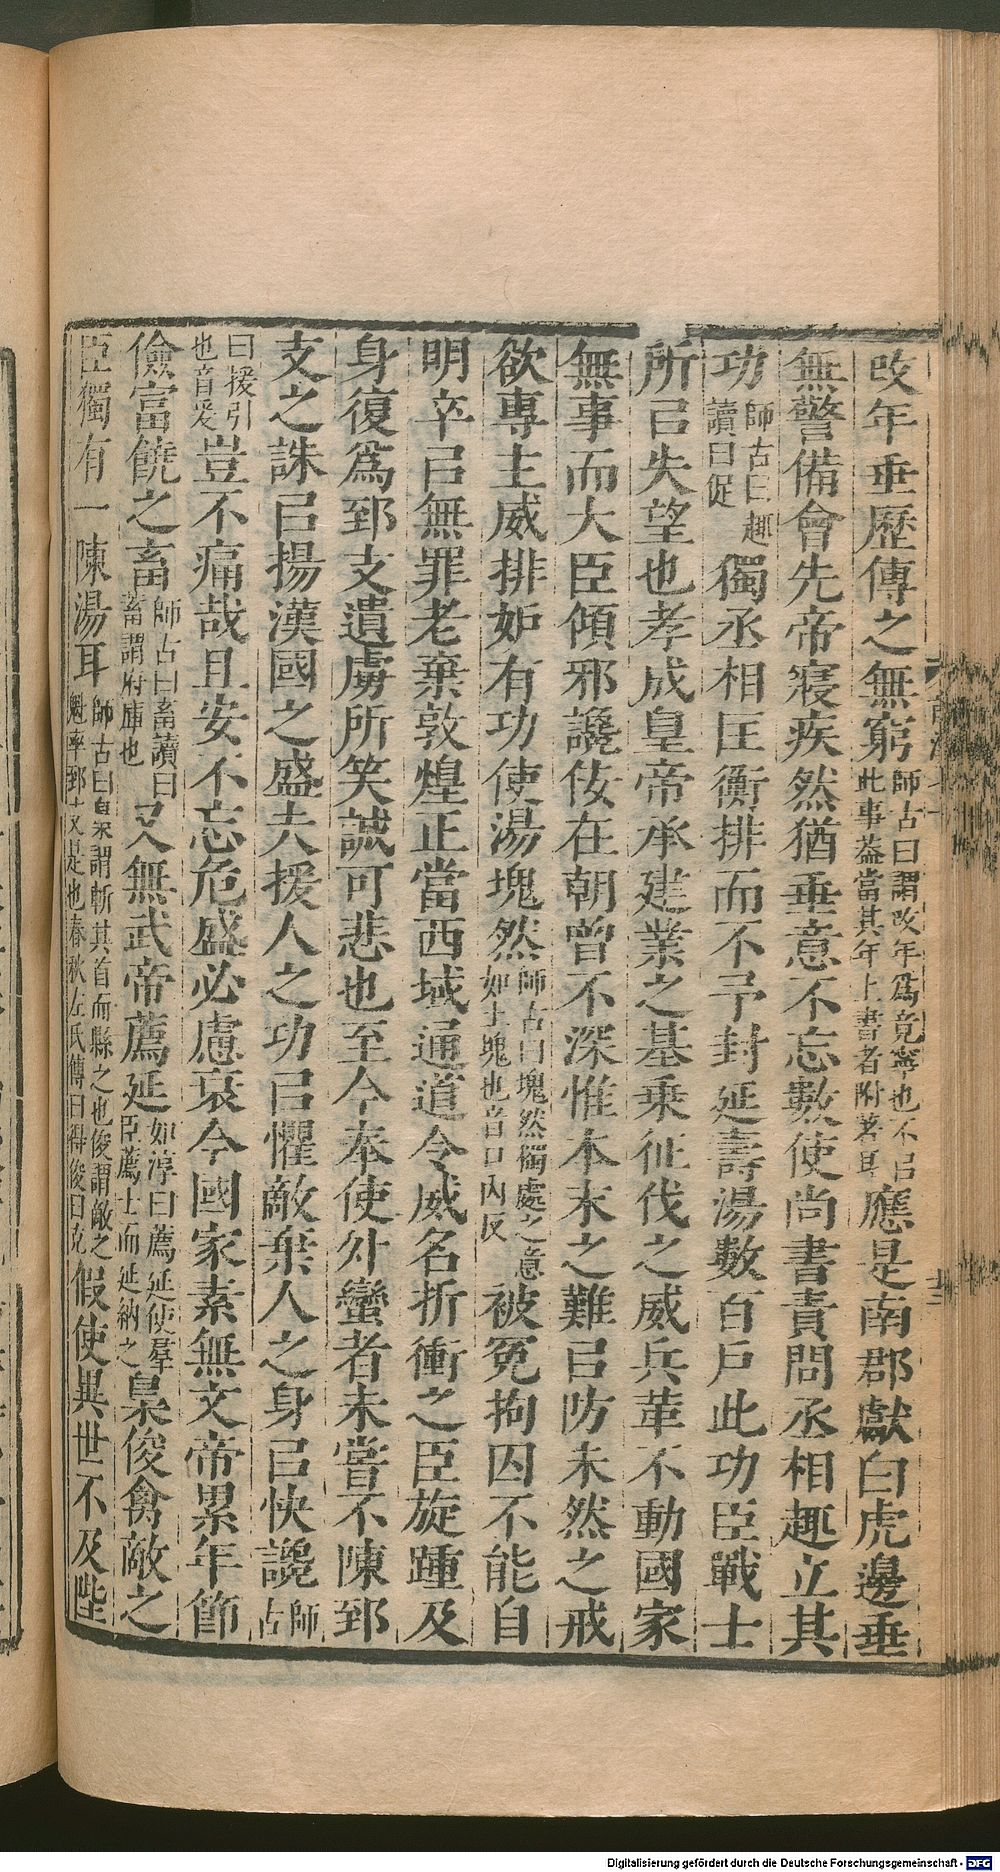 改年垂歷傳之無窮師古曰謂改年爲竟寧也不㠯此事蓋當其年上書者附著耳應是南郡獻白虎邊垂
無警備會先帝寢疾然猶垂意不忘數使尚書責問丞相趣立其
功師古曰趣讀曰促獨丞相匡衡排而不予封延壽湯數百戶此功臣戰士
所㠯失望也孝成皇帝承建業之基乘征伐之威兵革不動國家
無事而大臣傾邪讒佞在朝曾不深惟本末之難㠯防未然之戒
欲專主威排妒有功使湯塊然師古曰塊然獨處之意如土塊也音口內反被冤拘囚不能自
明卒㠯無罪老棄敦煌正當西域通道令威名折衝之臣旋踵及
身復爲郅支遺虜所笑誠可悲也至今奉使外蠻者未嘗不陳郅
支之誅㠯揚漢國之盛夫援人之功㠯懼敵棄人之身㠯快讒師古
曰援引也音爰豈不痛哉且安不忘危盛必慮衰今國家素無文帝累年節
儉富饒之畜師古曰畜讀曰蓄謂府庫也又無武帝薦延如淳曰薦延使羣臣薦士而延納之梟俊禽敵之
臣獨有一陳湯耳師古曰梟謂斬其首而縣之也俊謂敵之魁率郅支是也春秋左氏傳曰得俊曰克假使異世不及陛
Digitalisierung gefördert durch die Deutsche Forschungsgemeinschaft - DFG